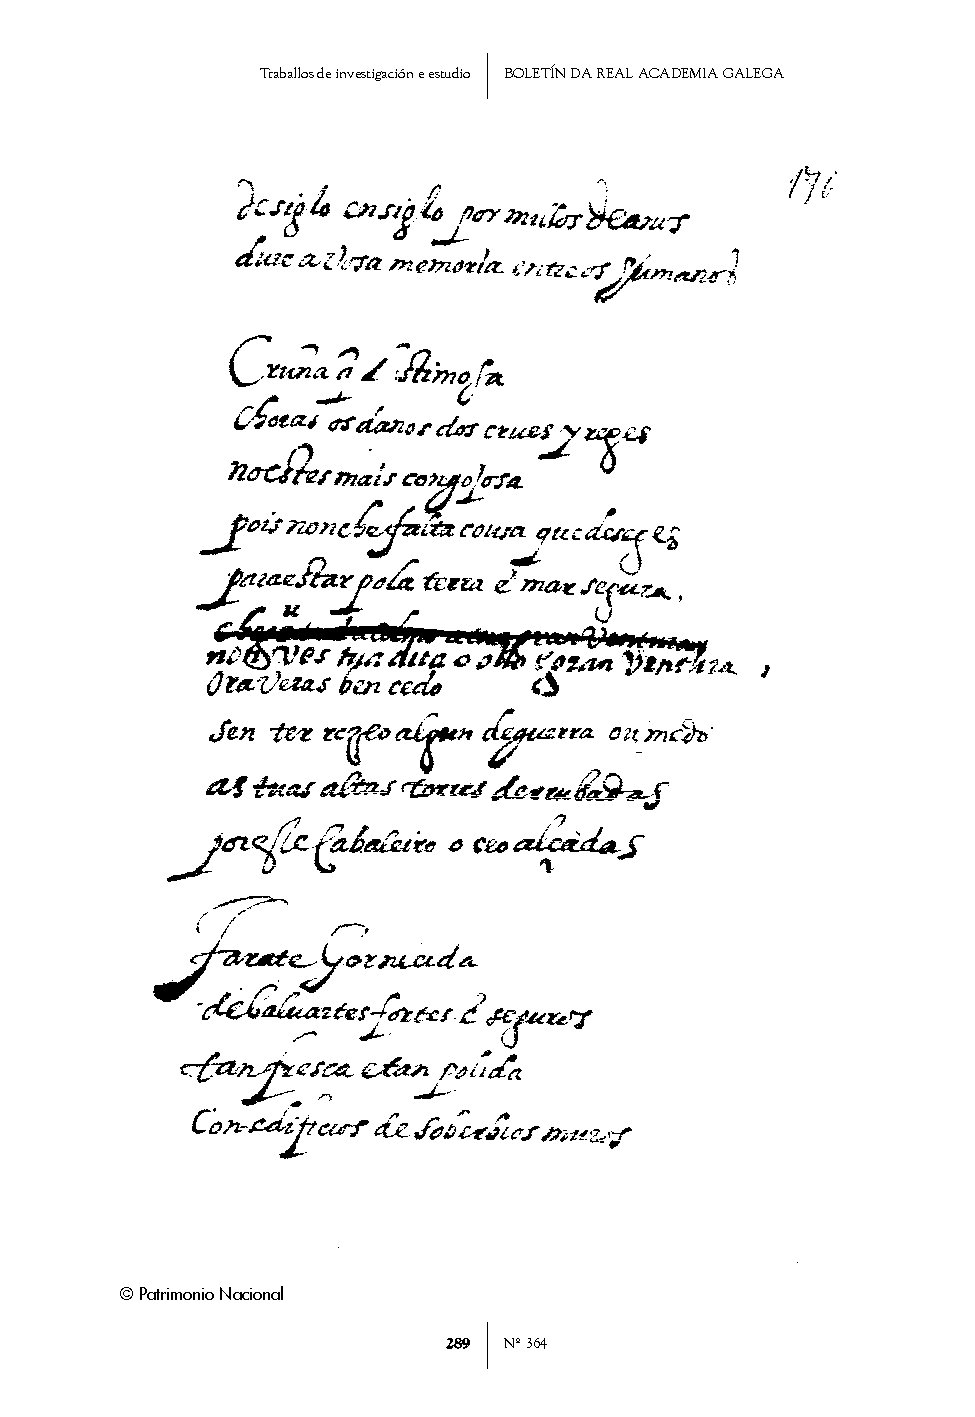 Traballos de investigación e estudio
BOLETÍN DA REAL ACADEMIA GALEGA
176
de siglo en siglo por mill͠os de anos
dure a vosa memoria entre os humanos
Cruña a lastimosa
choras os danos dos crues y reges
nocestes mais congojosa
pois non che falta cousa que deseges
para estar pola terra e mar segura,
no ves tua dita o gran ventura,
Ora veras ben cedo
sen ter rezeo algun de guerra ou medo
as tuas altas torres derrubadas
por este Cabaleiro o ceo alçadas
farate Gornicida
de baluartes fortes e seguros
tan fresca e tan polida
Con edificios de soberbios muros
© Patrimonio Nacional
289
Nº 364